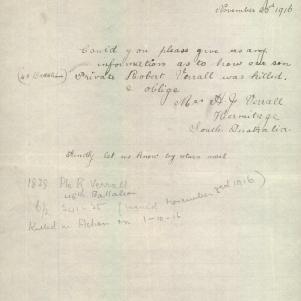 November 26th 1916
Could you please give us any
information as to how our son
(48 Battalion) Private Robert Verrall was killed.
& oblige
Mrs H J Verrall
Hermitage
South Australia.
Kindly let us know by return mail
1839 Pte R Verrall
48th Battalion
(Wired November 3rd 1916)
Killed in Action on 1-10-16